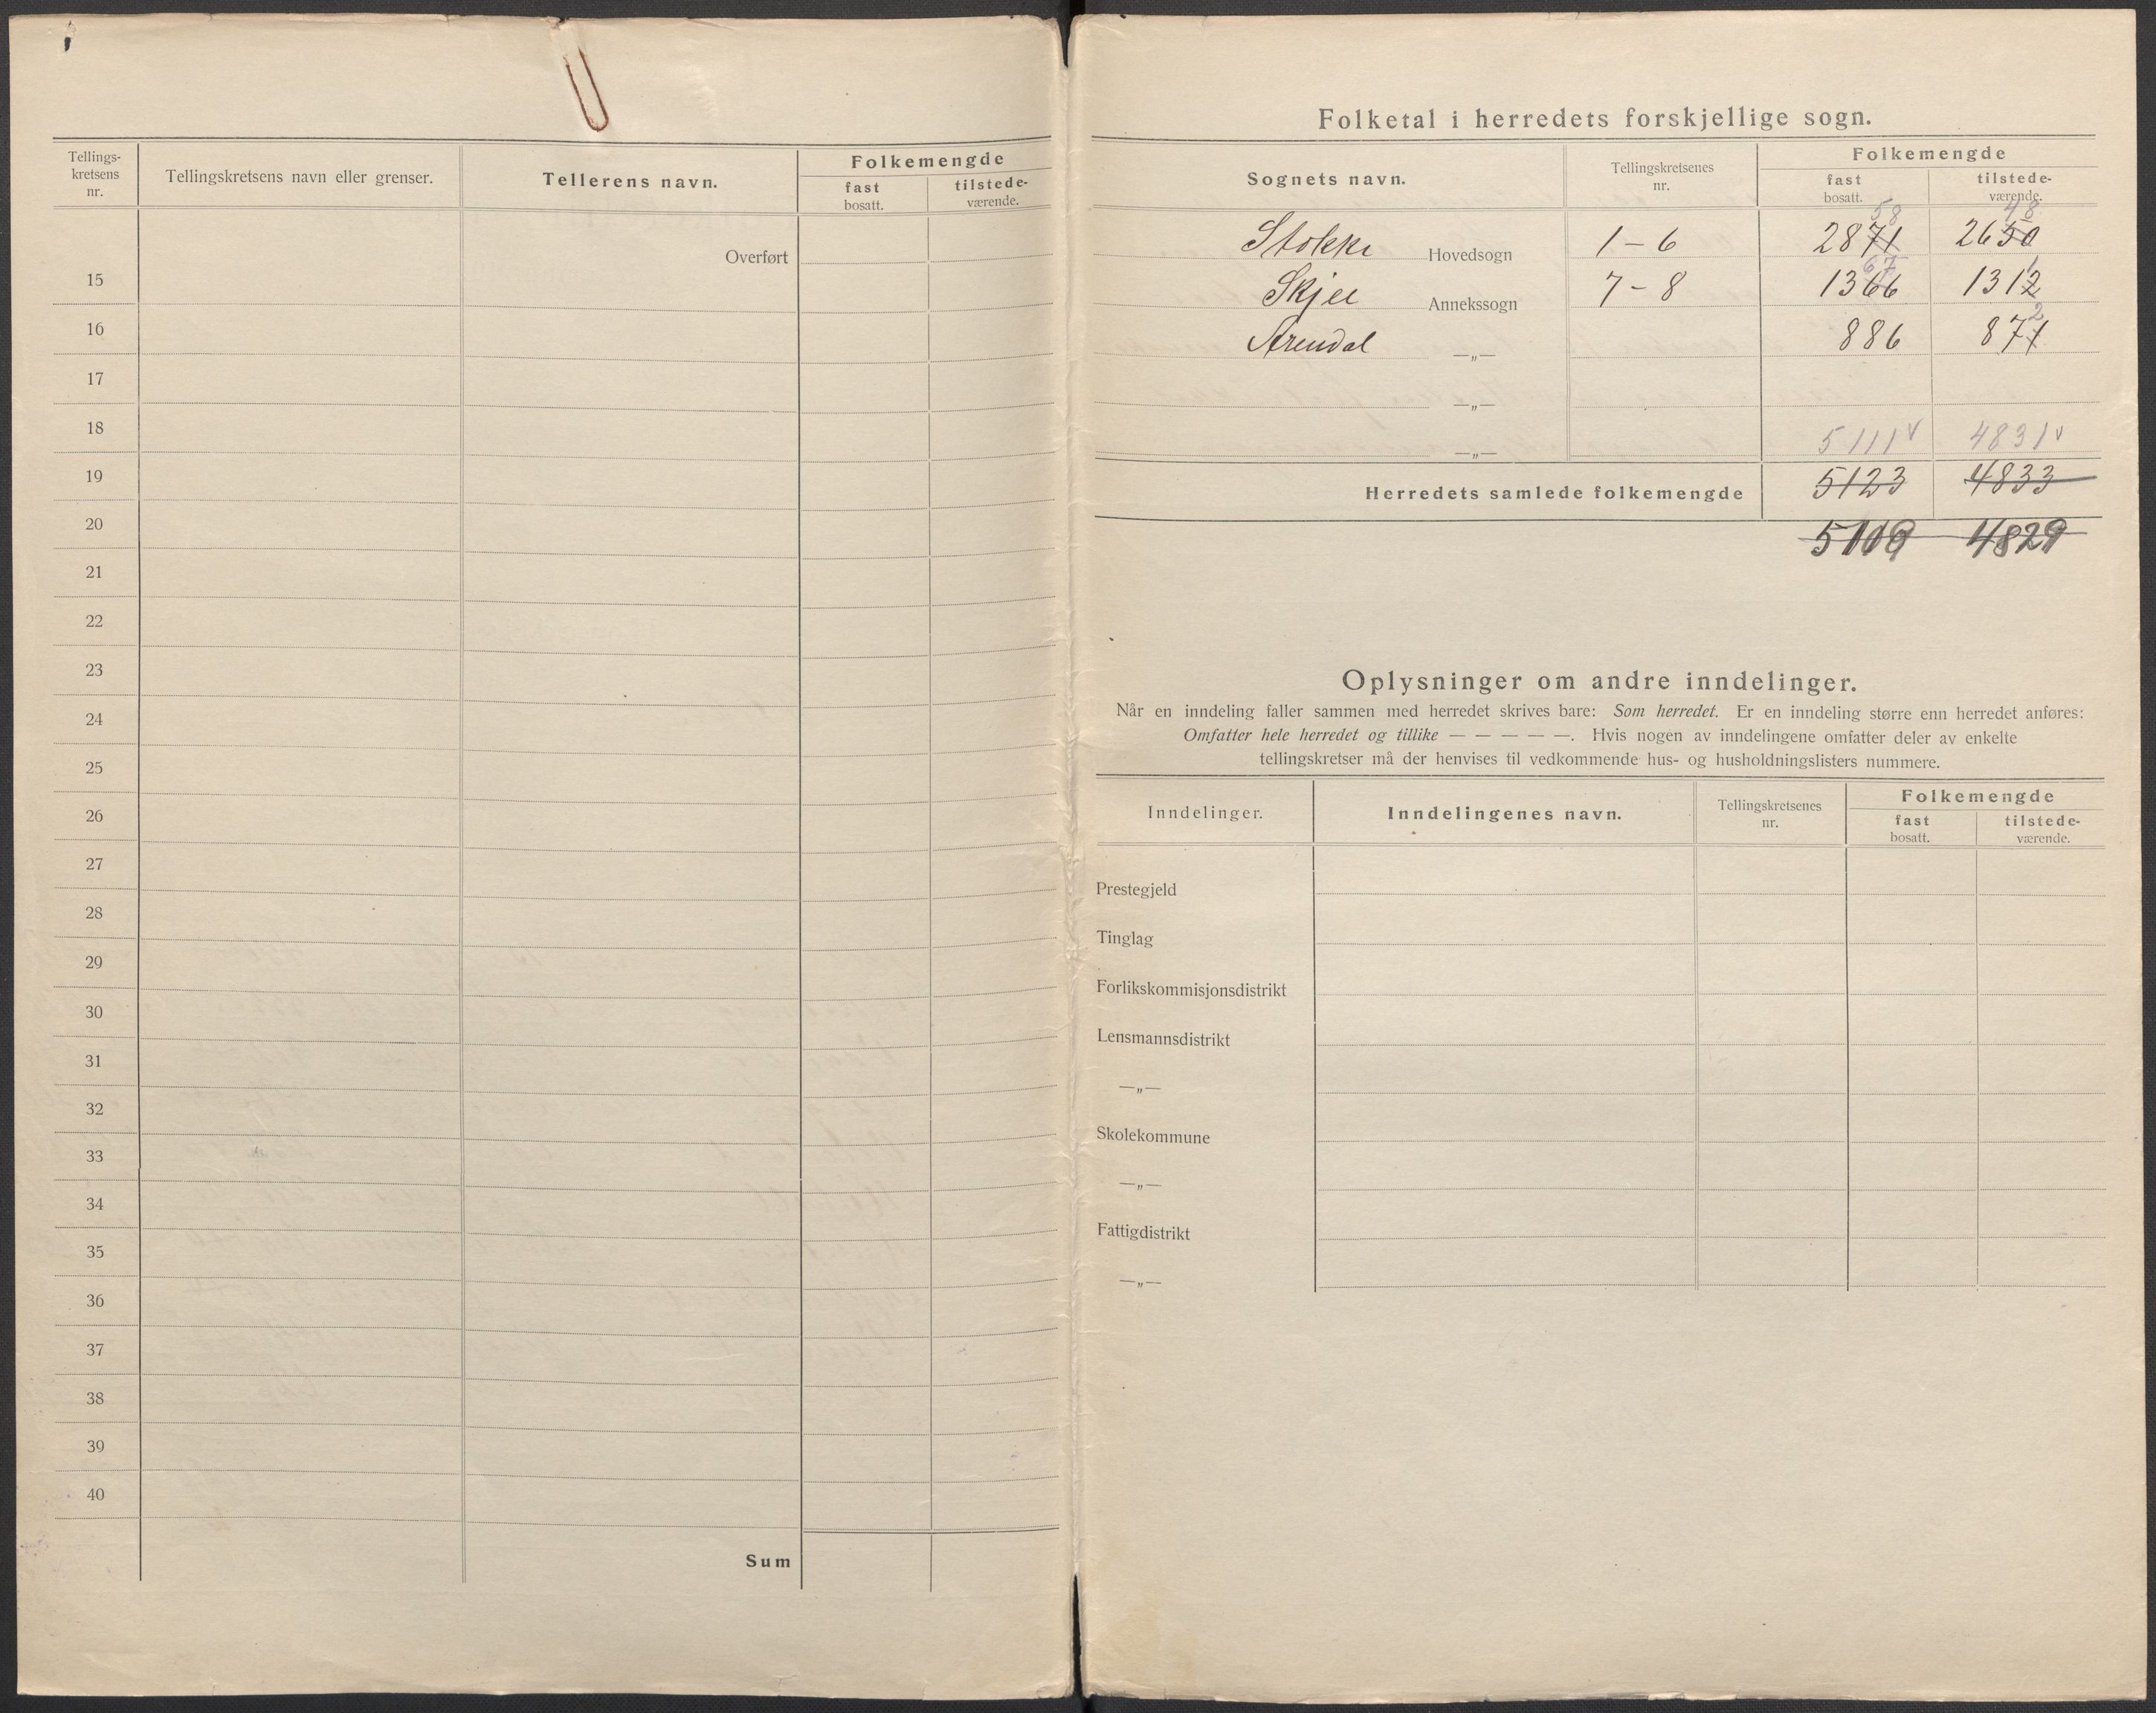 Tellings-
kretsens
nr.
Tellingskretsens navn eller grenser.
Tellerens navn.
Folkemengde
fast
bosatt.
tilstede-
værende.
Overført
15
16
17
18
19
20
21
22
23
24
25
26
27
28
29
30
31
32
33
34
35
36
37
38
39
40
Sum
Folketal i herredets forskjellige sogn.
Sognets navn.
Tellingskretsenes
nr.
Folkemengde
fast
bosatt.
tilstede-
værende.
58 48
Stokke Hovedsogn 1 - 6 2871 2650
67 1
Skjee Annekssogn 7 - 8 1366 1312
2
Arendal —„— 886 871
—„—
—„— 5111 v 4831 v
Herredets samlede folkemengde 5123 4833
5109 4829
Oplysninger om andre inndelinger.
Når en inndeling faller sammen med herredet skrives bare: Som herredet. Er en inndeling større enn herredet anføres:
Omfatter hele herredet og tillike — — — — —. Hvis nogen av inndelingene omfatter deler av enkelte
tellingskretser må der henvises til vedkommende hus- og husholdningslisters nummere.
Inndelinger.
Inndelingenes navn.
Tellingskretsenes
nr.
Folkemengde
fast
bosatt.
tilstede-
værende.
Prestegjeld
Tinglag
Forlikskommisjonsdistrikt
Lensmannsdistrikt
—„—
Skolekommune
—„—
Fattigdistrikt
—„—